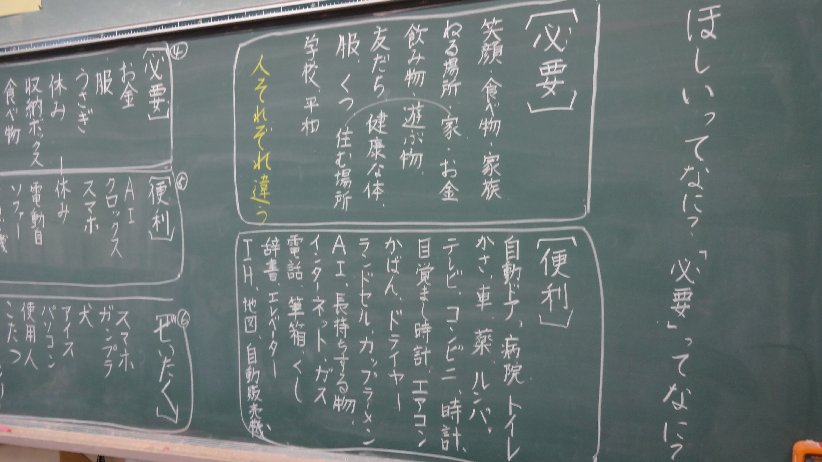 ほしいってなに?「必要」ってなに?
[必要]
笑顔・食べ物・家族
ねる場所・家・お金
飲み物、遊ぶ物、
友だち 健康な体、
服、くつ 住む場所
学校、平和
人それぞれ違う
[便利]
自動ドア、病院、トイレ
かさ、車、薬、ルンバ、
テレビ、コンビニ、時計、
目覚まし時計、エアコン
かばん、ドライヤー
ランドセル、カップラーメン
AI、長持ちする物、
インターネット、ガス
電話、筆箱、くし
辞書、エレベーター
IH、地図、自動販売機、
④
[必要]
お金
・服
うさぎ
休み
収納ボックス
食べ物
⑤
[便利]
AI
クロックス
スマホ
休み
電動自
ソファー
⑥
ぜいたく]
スマホ
ガンプラ
犬
アイス
パソコン
使用人
こたつ